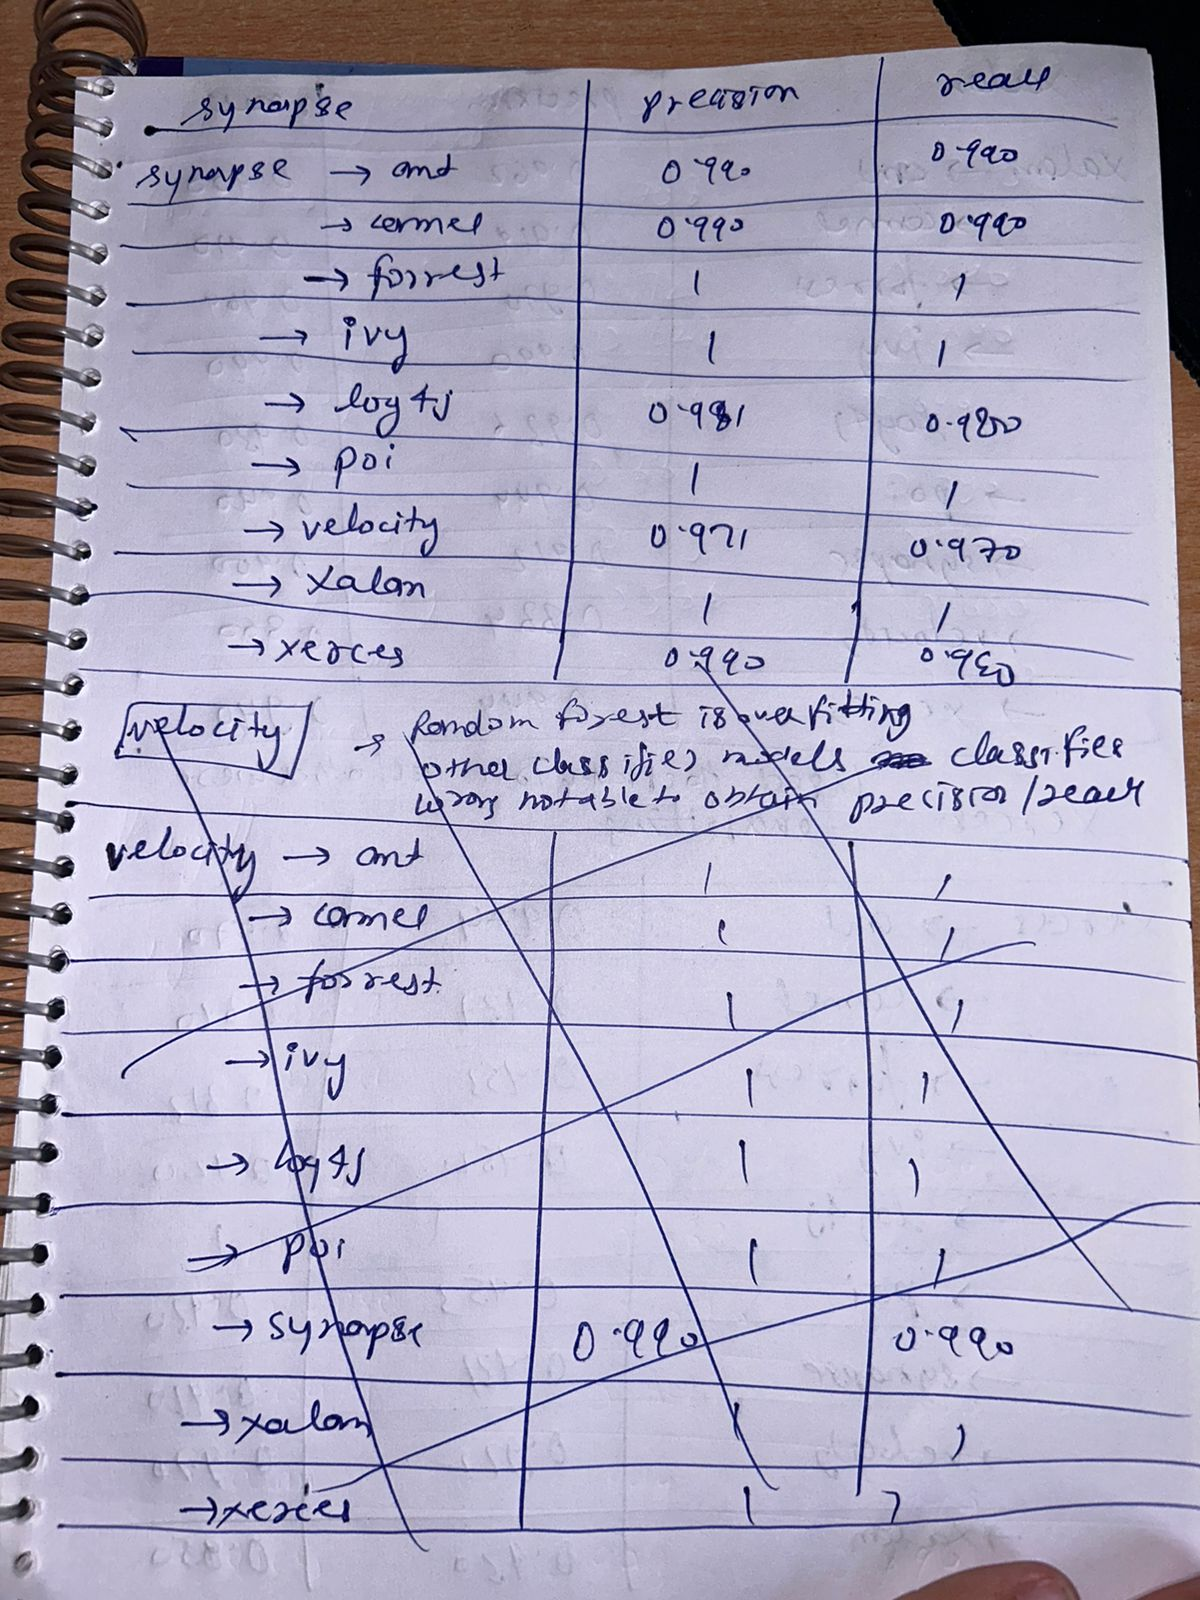 synapse precision recall
synapse → ant 0.990 0.990
→ camel 0.990 0.990
→ forrest 1 1
→ ivy 1 1
→ log4j 0.981 0.980
→ poi 1 1
→ velocity 0.971 0.970
→ xalan 1 1
→ xerces 0.990
velocity → Random forest is overfitting
other classifier models classifies
wrong not able to obtain precision/recall
velocity → ant 1 1
→ camel 1 1
→ forrest 1 1
→ ivy 1 1
→ log4j 1 1
→ poi 1 1
→ synapse 0.990 0.990
→ xalan 1 1
→ xerces 1 1